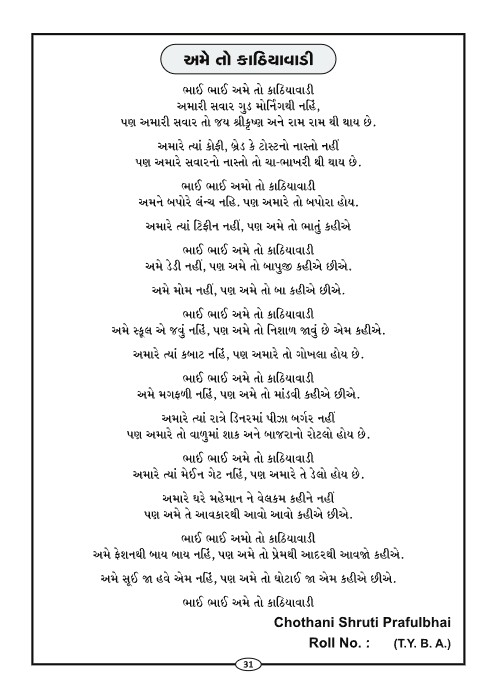 અમે તો કાઠિયાવાડી
ભાઈ ભાઈ અમે તો કાઠિયાવાડી
અમારી સવાર ગુડ મોર્નિંગથી નહિં,
પણ અમારી સવાર તો જય શ્રીકૃષ્ણ અને રામ રામ થી થાય છે.
અમારે ત્યાં કોફી, બ્રેડ કે ટોસ્ટનો નાસ્તો નહીં
પણ અમારે સવારનો નાસ્તો તો ચા-ભાખરી થી થાય છે.
ભાઈ ભાઈ અમો તો કાઠિયાવાડી
અમને બપોરે લંન્ચ નહિ. પણ અમારે તો બપોરા હોય.
અમારે ત્યાં ટિફીન નહીં, પણ અમે તો ભાતું કહીએ
ભાઈ ભાઈ અમે તો કાઠિયાવાડી
અમે ડેડી નહીં, પણ અમે તો બાપુજી કહીએ છીએ.
અમે મોમ નહીં, પણ અમે તો બા કહીએ છીએ.
ભાઈ ભાઈ અમે તો કાઠિયાવાડી
અમે સ્કૂલ એ જવું નહિં, પણ અમે તો નિશાળ જાવું છે એમ કહીએ.
અમારે ત્યાં કબાટ નહિં, પણ અમારે તો ગોખલા હોય છે.
ભાઈ ભાઈ અમે તો કાઠિયાવાડી
અમે મગફળી નહિં, પણ અમે તો માંડવી કહીએ છીએ.
અમારે ત્યાં રાત્રે ડિનરમાં પીઝા બર્ગર નહીં
પણ અમારે તો વાળુમાં શાક અને બાજરાનો રોટલો હોય છે.
ભાઈ ભાઈ અમે તો કાઠિયાવાડી
અમારે ત્યાં મેઈન ગેટ નહિં, પણ અમારે તે ડેલો હોય છે.
અમારે ઘરે મહેમાન ને વેલકમ કહીને નહીં
પણ અમે તે આવકારથી આવો આવો કહીએ છીએ.
ભાઈ ભાઈ અમો તો કાઠિયાવાડી
અમે ફેશનથી બાય બાય નહિં, પણ અમે તો પ્રેમથી આદરથી આવજો કહીએ.
અમે સૂઈ જા હવે એમ નહિં, પણ અમે તો ઘોટાઈ જા એમ કહીએ છીએ.
ભાઈ ભાઈ અમે તો કાઠિયાવાડી
Chothani Shruti Prafulbhai
Roll No. : (T.Y. B. A.)
31